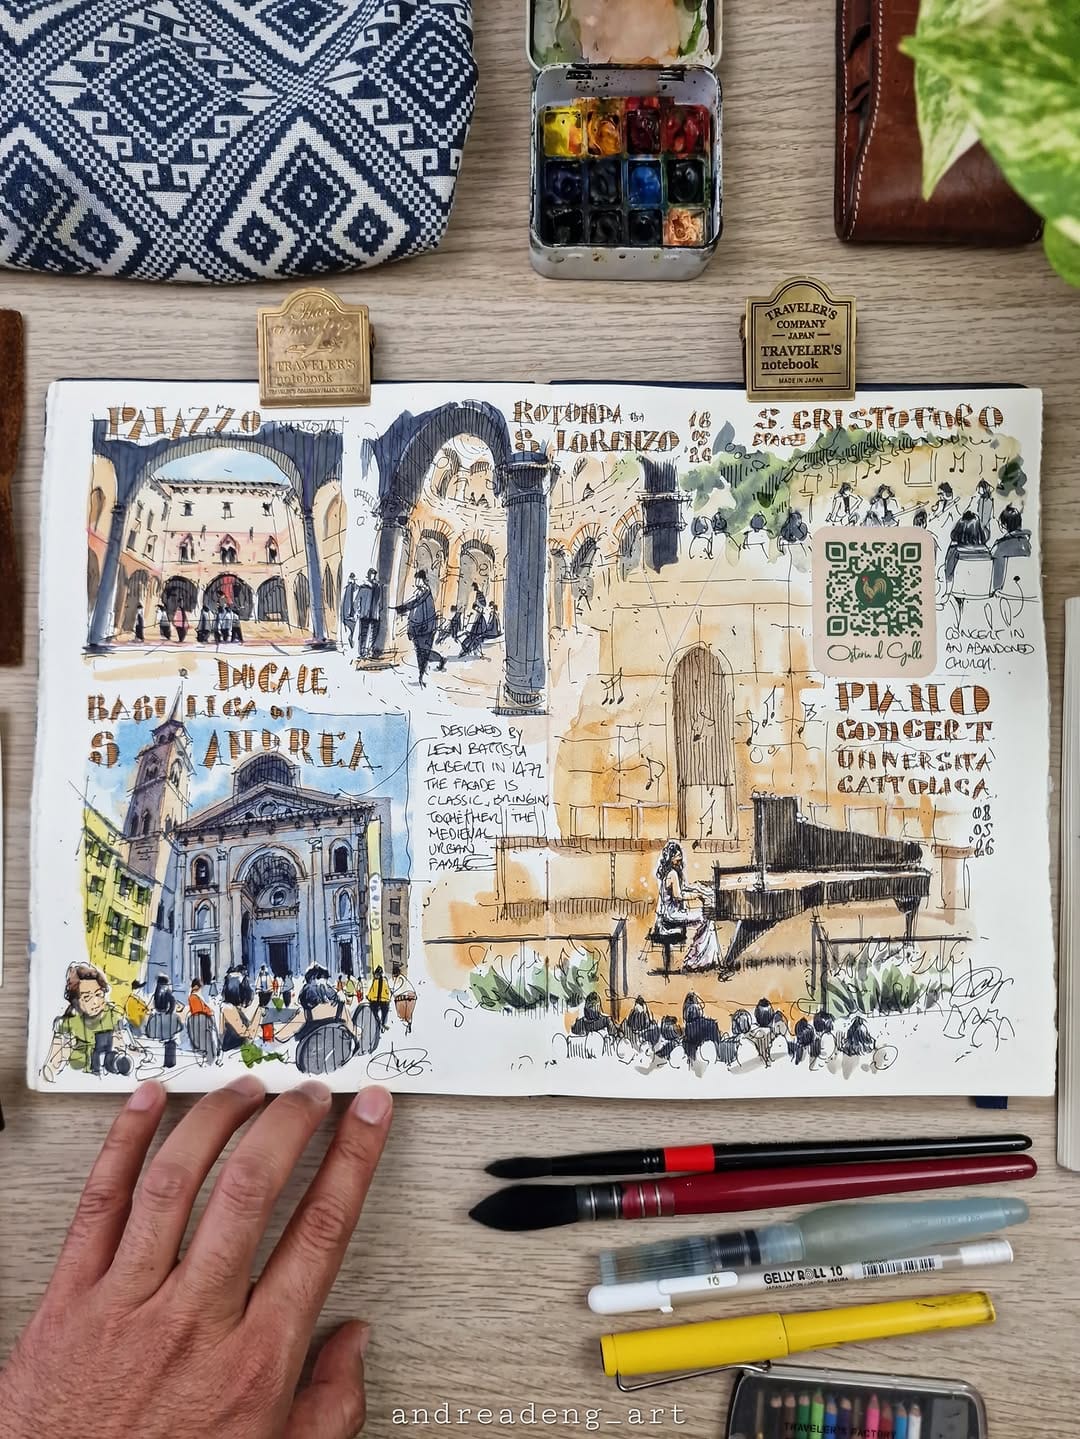 TRAVELER'S
notebook
TRAVELER'S COMPANY MADE IN JAPAN
TRAVELER'S
COMPANY
JAPAN
TRAVELER'S
notebook
MADE IN JAPAN
PALAZZO
DUCALE
ROTONDA
S. LORENZO
16
05
26
S. CRISTOFORO
CONCERT IN
AN ABANDONED
CHURCH.
Osteria al Gallo
BASILICA DI
S ANDREA
DESIGNED BY
LEON BATTISTA
ALBERTI IN 1472
THE FACADE IS
CLASSIC, BRINGING
TOGHETHER THE
MEDIEVAL
URBAN
PIANO
CONCERT
UNIVERSITA
CATTOLICA
08
05
26
10
GELLY ROLL 10
JAPAN / JAPON / JAPÓN SAKURA
TRAVELER'S FACTORY
andreadeng_art